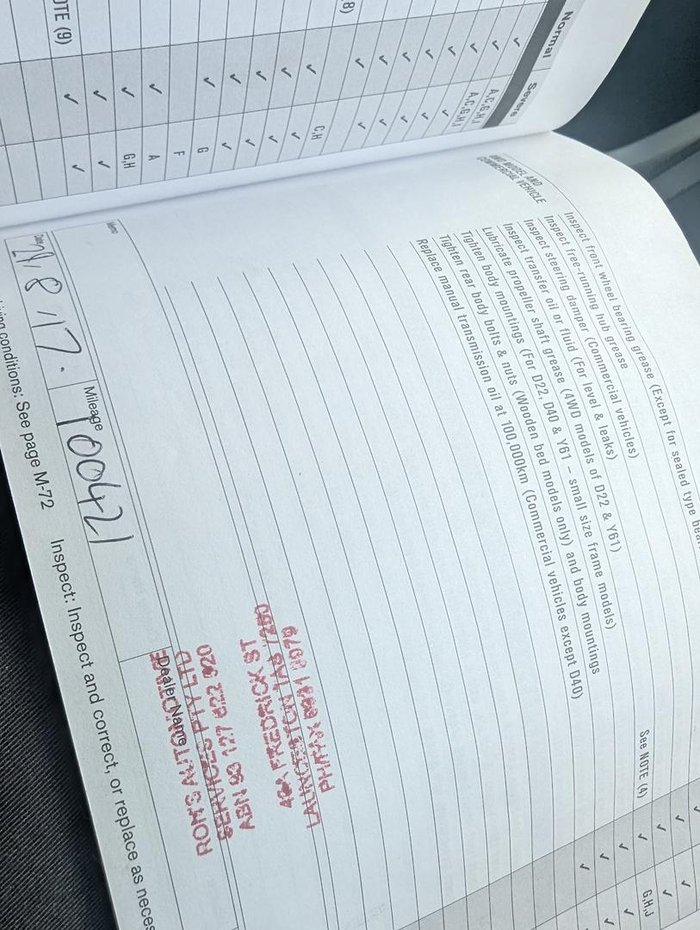 Normal
Severe
A,C,G,H,I
A,C,G,H,I
C,H
G
F
A
G,H
OTE (9)
8)
4WD MODEL AND
COMMERCIAL VEHICLE
Inspect front wheel bearing grease (Except for sealed type
Inspect free-running hub grease
Inspect steering damper (Commercial vehicles)
Inspect transfer oil or fluid (For level & leaks)
Lubricate propeller shaft grease (4WD models of D22 & Y61)
Tighten body mountings (For D22, D40 & Y61 – small size frame models)
Tighten rear body bolts & nuts (Wooden bed models only) and body mountings
Replace manual transmission oil at 100,000km (Commercial vehicles except D40)
See NOTE (4)
G,H,J
Date
8.17.
Mileage
100421
Dealer Name
SERVICES PTY LTD
FREDRICK ST
LAUNCESTON TAS 7250
conditions: See page M-72
Inspect: Inspect and correct, or replace as neces